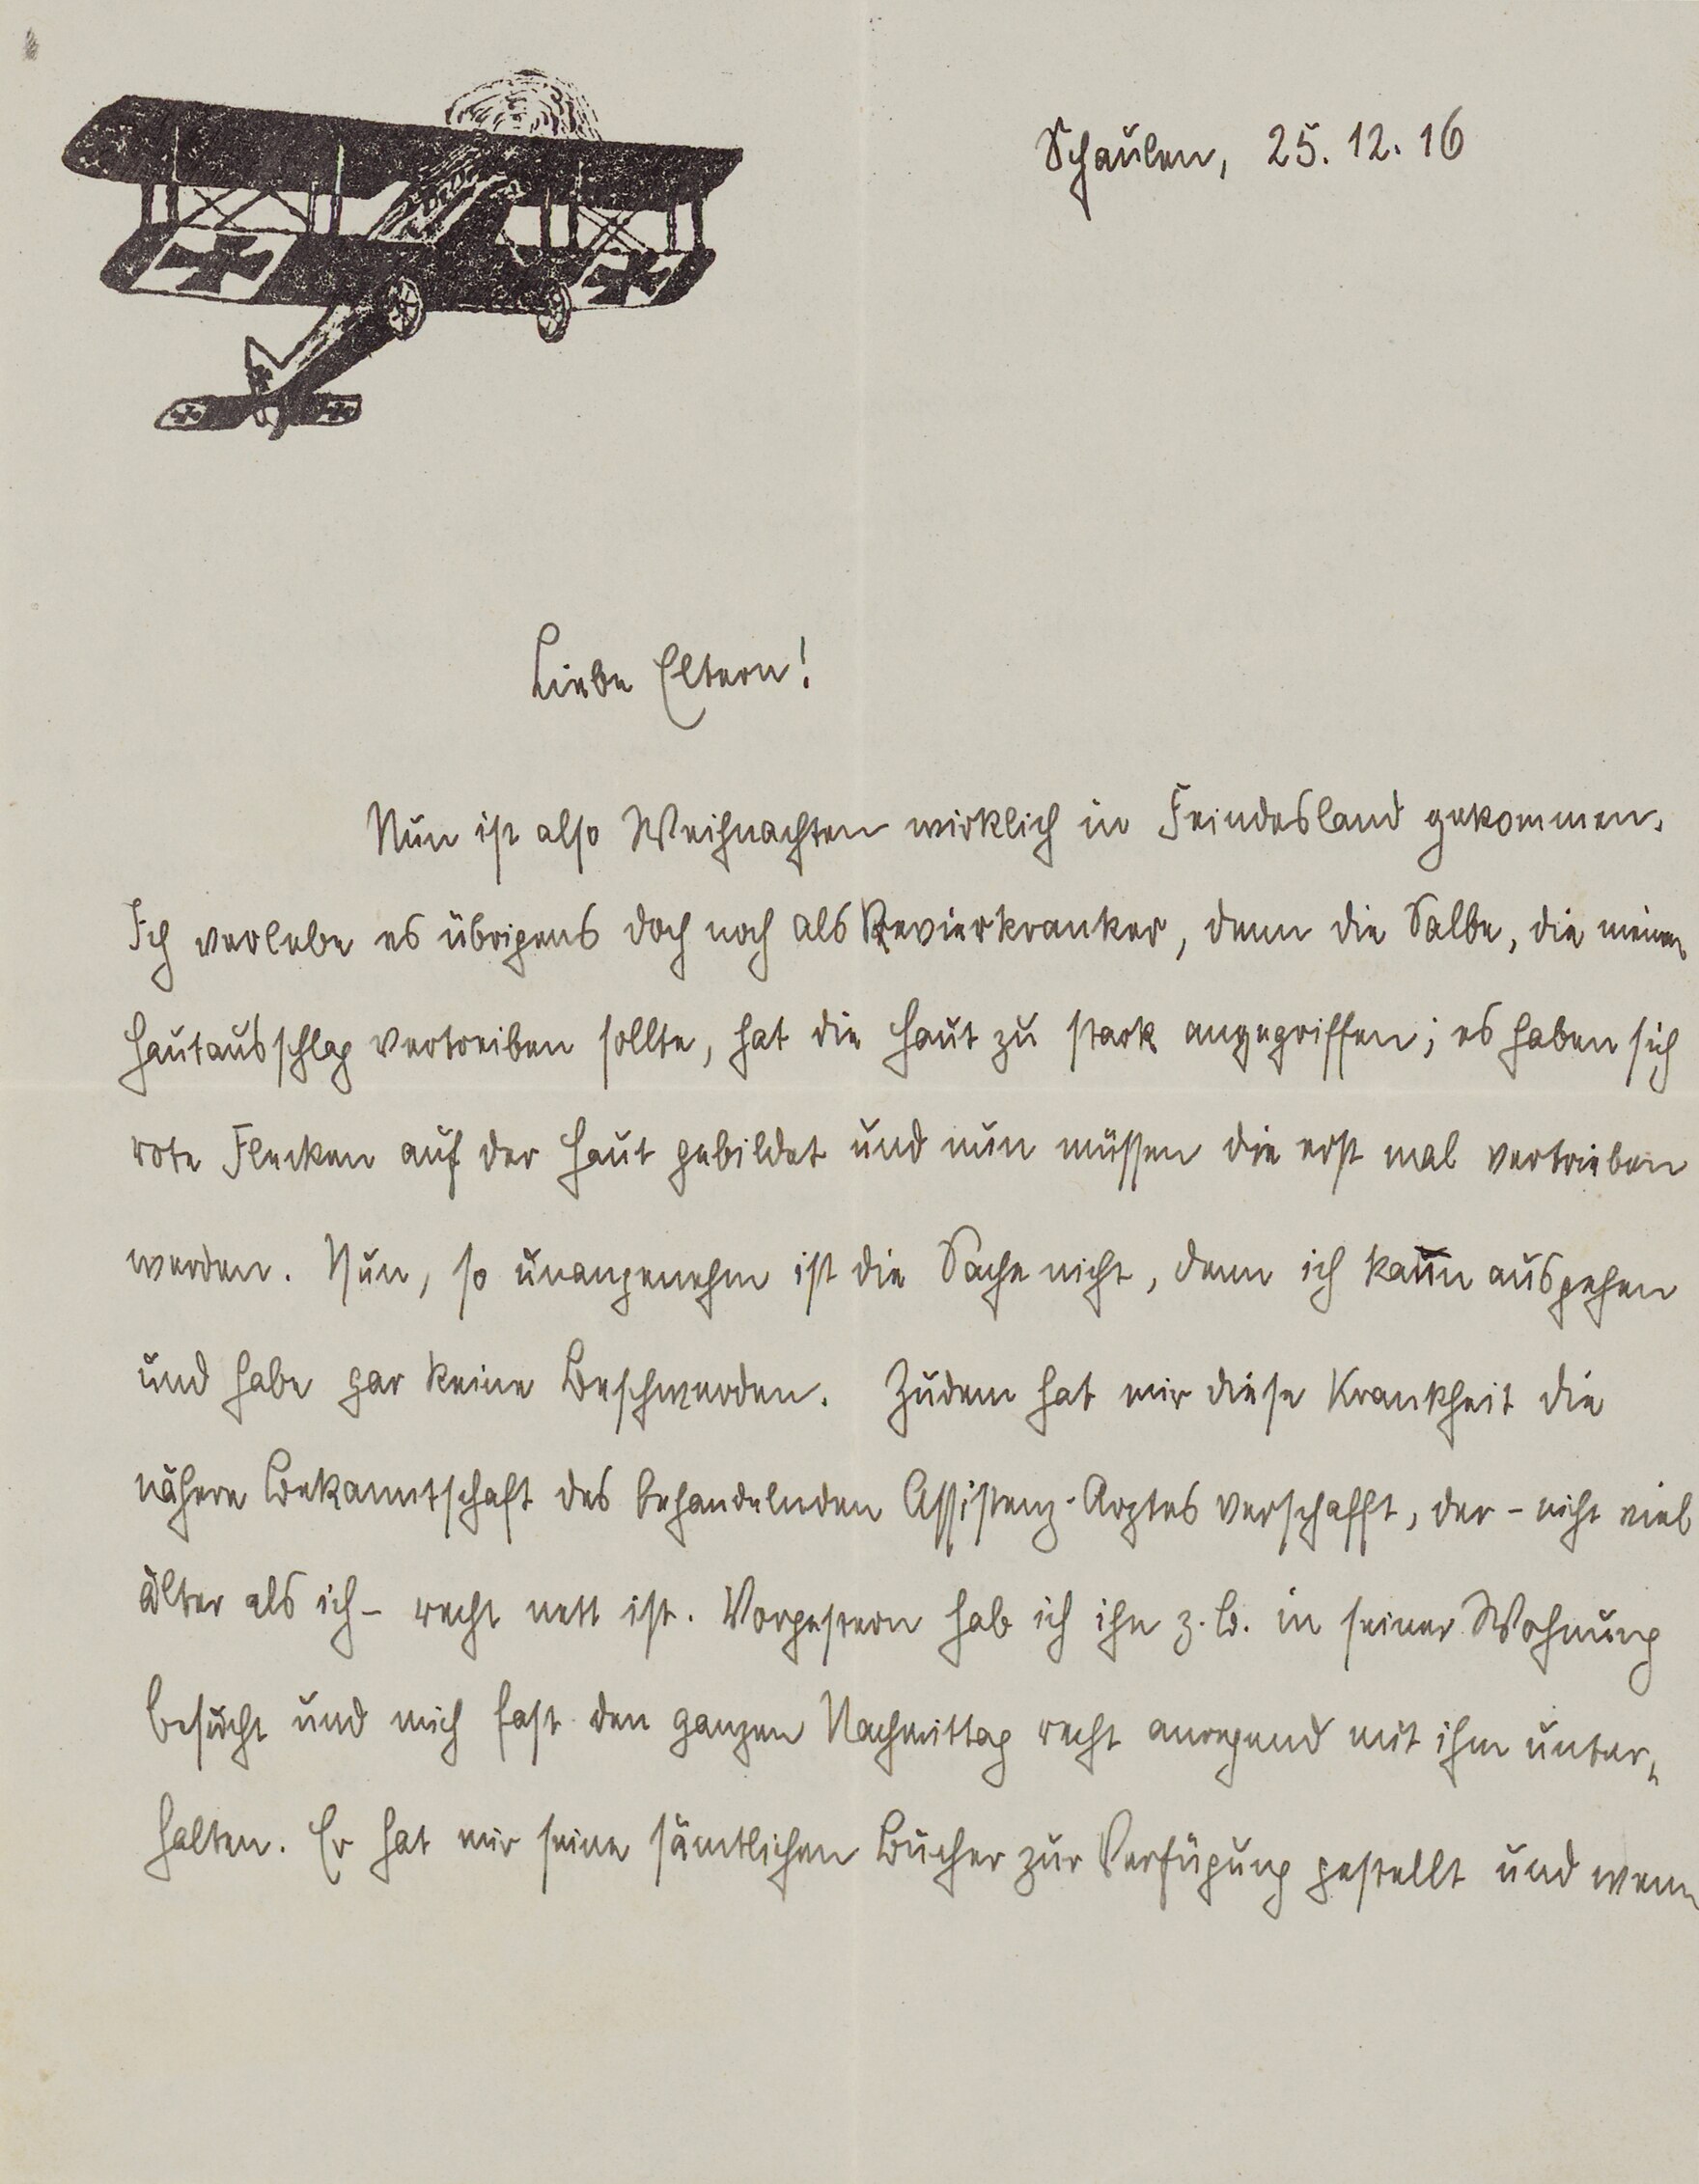 Schaulen, 25. 12. 16
Liebe Eltern!
Nun ist also Weihnachten wirklich in Feindesland gekommen.
Ich verlebe es übrigens doch noch als Revierkranker, denn die Salbe, die meinen
Hautausschlag vertreiben sollte, hat die Haut zu stark angegriffen; es haben sich
rote Flecken auf der Haut gebildet und nun müssen die erst mal vertrieben
werden. Nun, so unangenehm ist die Sache nicht, denn ich kann ausgehen
und habe gar keine Beschwerden. Zudem hat mir diese Krankheit die
nähere Bekanntschaft des behandelnden Assistenz-Arztes verschafft, der – nicht viel
älter als ich – recht nett ist. Vorgestern hab ich ihn z. B. in seiner Wohnung
besucht und mich fast den ganzen Nachmittag recht anregend mit ihm unter-
halten. Er hat mir seine sämtlichen Bücher zur Verfügung gestellt und wenn